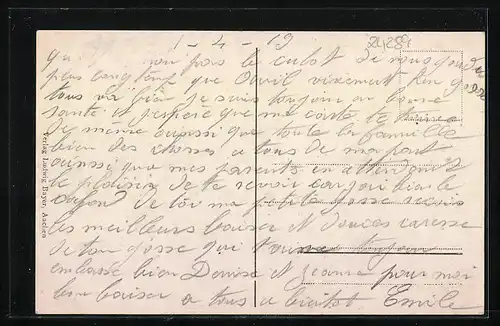 1 - 4 - 19
24289
qu non pas le culot de vous
plus longtemps que Avril vivement
tous va bien je suis toujour en bonne
santé et j'espère que ma carte te
de meme aussi que toute la famille
bien des choses a tous de ma part
aussi que mes parents en attendant
le plaisir de te revoir
de toi ma petite gosse reçois
les meilleurs baiser et douces caresse
de ton gosse qui t'aime toujour
embrasse bien Denise et Jeanne pour moi
bon baiser a tous a bientot Emile
Verlag Ludwig Bayer, Aachen